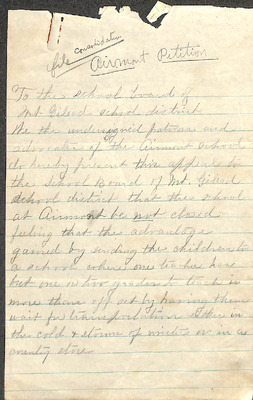 file consolidation
Airmont Petition
To the school board of
Mt. Gilead school district
We the undersigned patrons and
advocates of the Airmont school
do hereby present this appeal to
the School Board of Mt. Gilead
school district that the school
at Airmont be not closed
feeling that the advantage
gained by sending the children to
a school where one teacher has
but one or two grades to teach is
more than off set by having them
wait for transportation either in
the cold & storms of winter or in a
country store